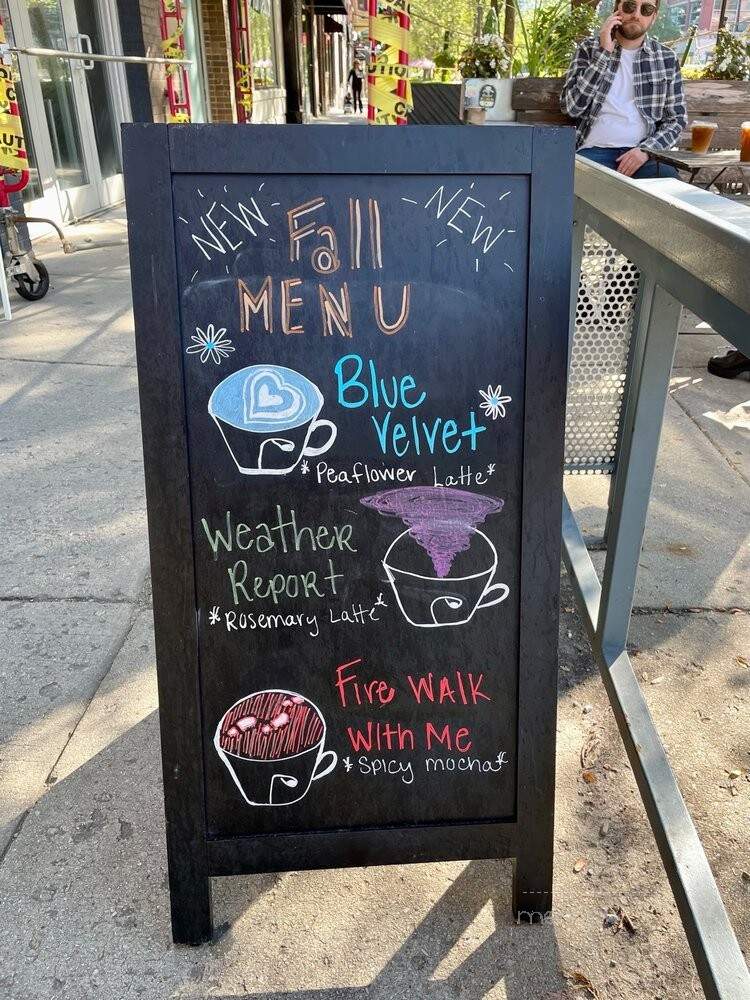 NEW Fall NEW
MENU
Blue
Velvet
*Peaflower Latte*
Weather
Report
*Rosemary Latte*
Fire Walk
With Me
*Spicy mocha*